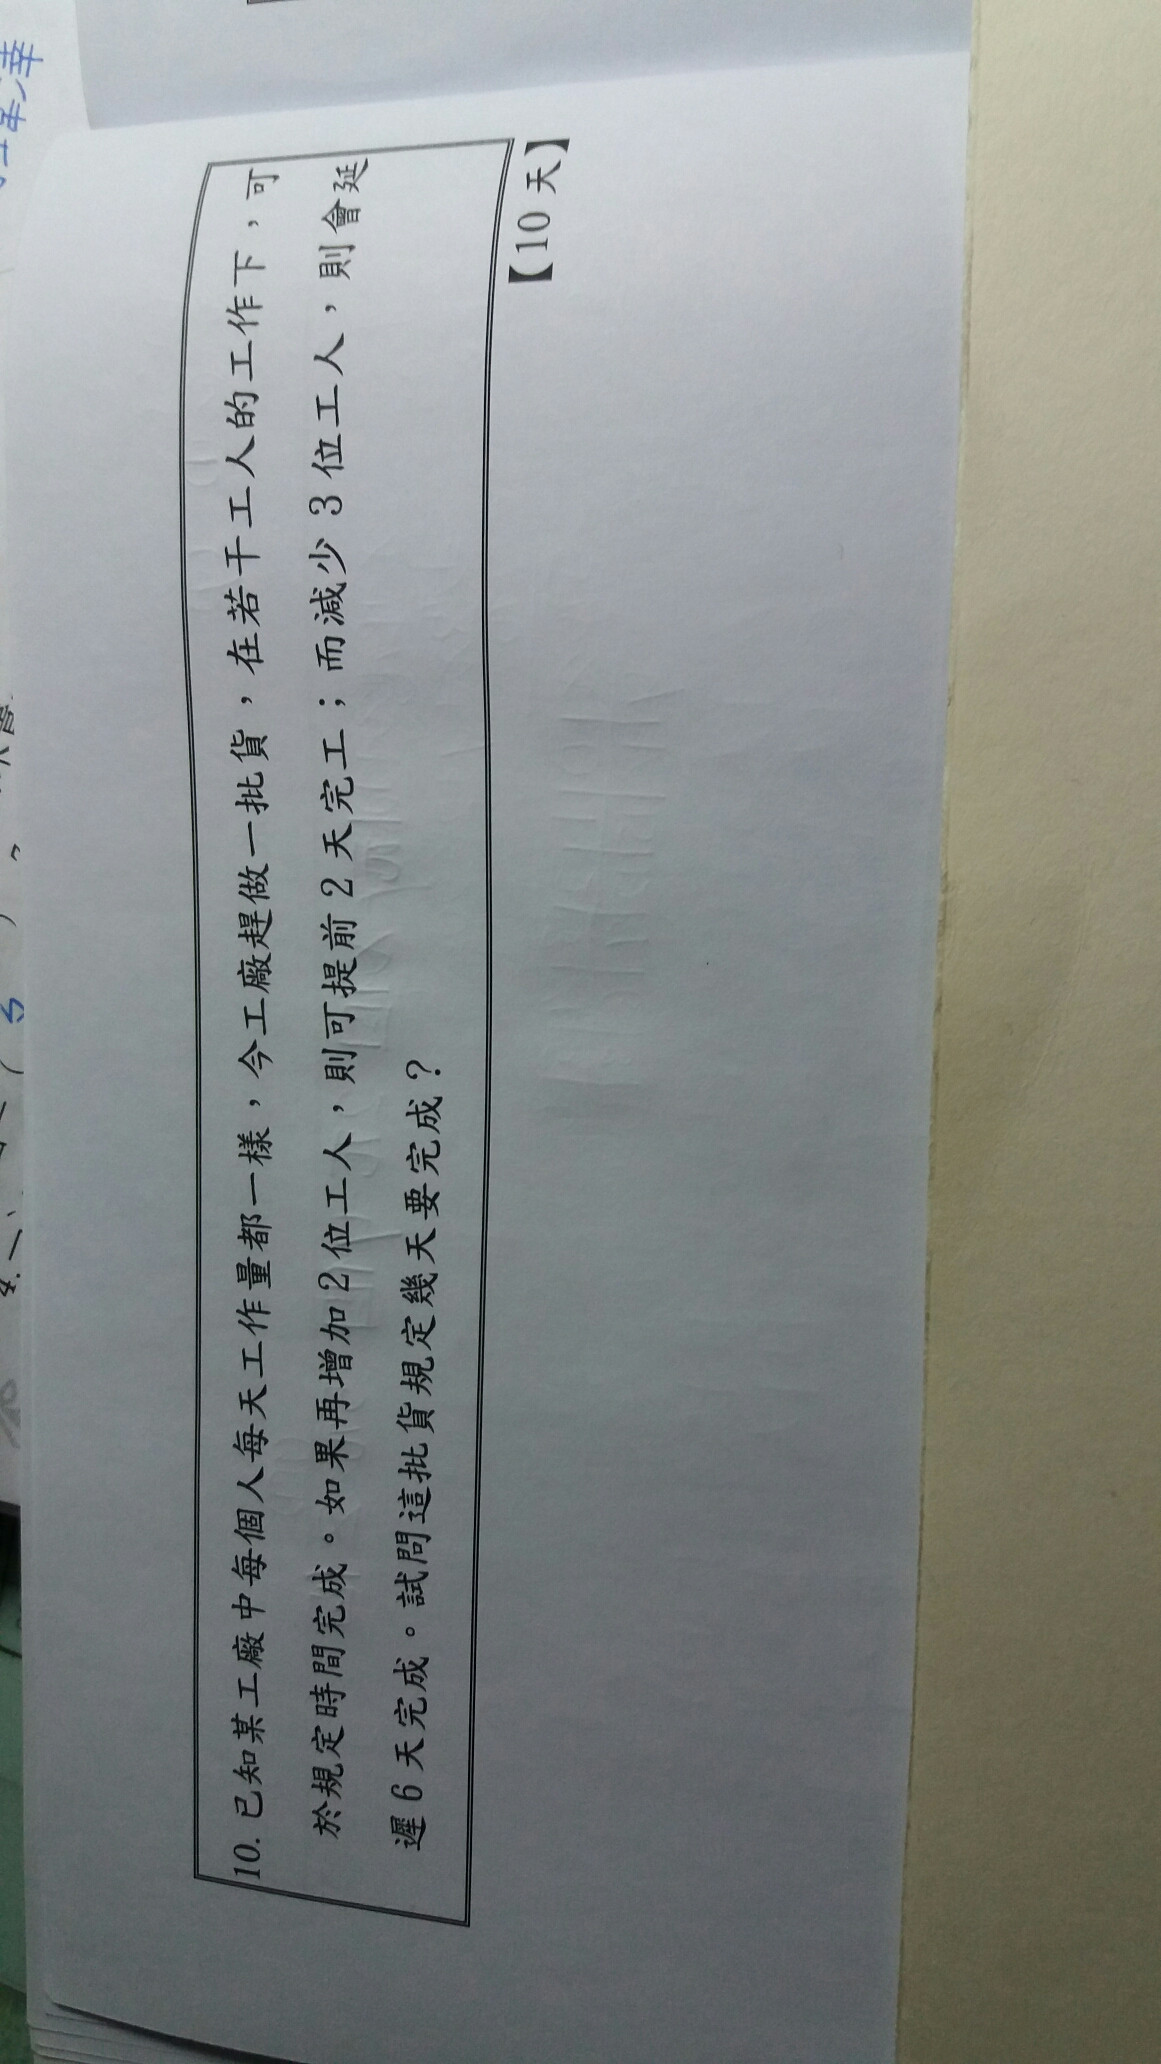 10. 已知某工廠中每個人每天工作量都一樣，今工廠趕做一批貨，在若干工人的工作下，可
於規定時間完成。如果再增加2位工人，則可提前2天完工；而減少3位工人，則會延
遲6天完成。試問這批貨規定幾天要完成？
【10天】